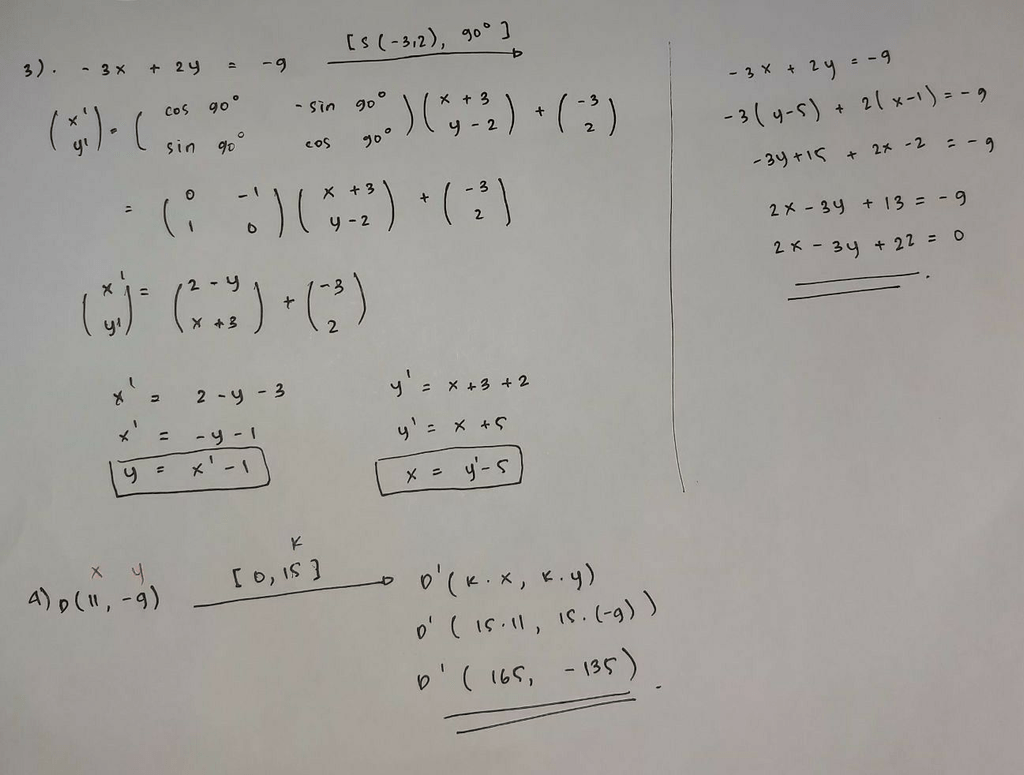 3). -3x + 2y = -9 [S(-3,2), 90°]
(x' y') = (cos 90° -sin 90° sin 90° cos 90°)(x + 3 y - 2) + (-3 2)
= (0 -1 1 0)(x + 3 y - 2) + (-3 2)
(x' y') = (2 - y x + 3) + (-3 2)
x' = 2 - y - 3
x' = -y - 1
y = x' - 1
y' = x + 3 + 2
y' = x + 5
x = y' - 5
-3x + 2y = -9
-3(y-5) + 2(x-1) = -9
-3y + 15 + 2x - 2 = -9
2x - 3y + 13 = -9
2x - 3y + 22 = 0
x y K
4) D(11, -9) [0, 15] D'(K.x, K.y)
D'(15.11, 15.(-9))
D'(165, -135)